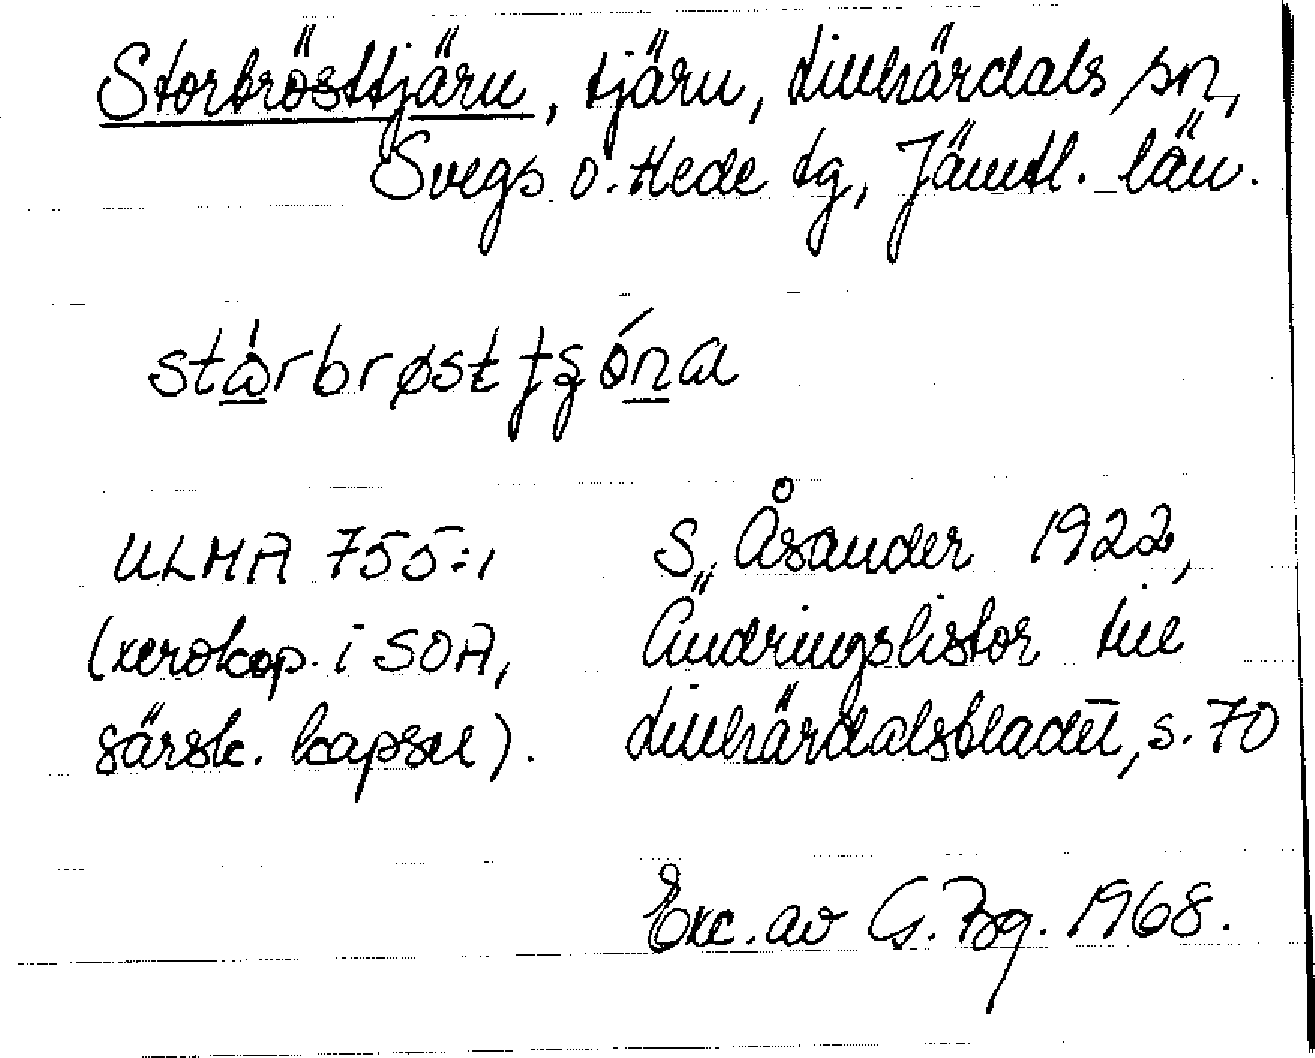 Storbrösttjärn, tjärn, Lillhärdals sn,
Svegs o. Hede tg, Jämtl. län.
stårbrøst
ULMA 755:1 S. Åsander 1922,
(xerokop. i SOA, Ändringslistor till
särsk. kapsel). Lillhärdalsbladet, s. 70
Exc. av G. Bg. 1968.